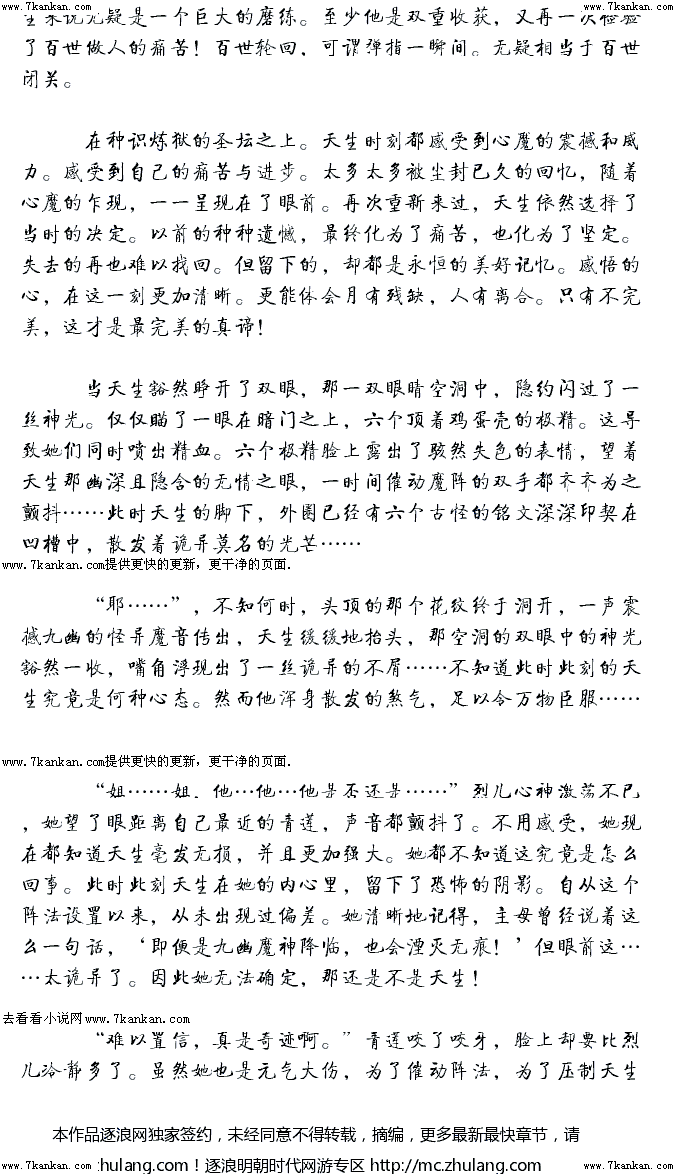 www.7kankan.com www.7kankan.com
生来说无疑是一个巨大的磨练。至少他是双重收获，又再一次检验
了百世做人的痛苦！百世轮回，可谓弹指一瞬间。无疑相当于百世
闭关。
在种识炼狱的圣坛之上。天生时刻都感受到心魔的震撼和威
力。感受到自己的痛苦与进步。太多太多被尘封已久的回忆，随着
心魔的乍现，一一呈现在了眼前。再次重新来过，天生依然选择了
当时的决定。以前的种种遗憾，最终化为了痛苦，也化为了坚定。
失去的再也难以找回。但留下的，却都是永恒的美好记忆。感悟的
心，在这一刻更加清晰。更能体会月有残缺，人有离合。只有不完
美，这才是最完美的真谛！
当天生豁然睁开了双眼，那一双眼睛空洞中，隐约闪过了一
丝神光。仅仅瞄了一眼在暗门之上，六个顶着鸡蛋壳的极精。这导
致她们同时喷出精血。六个极精脸上露出了骇然失色的表情，望着
天生那幽深且隐含的无情之眼，一时间催动魔阵的双手都齐齐为之
颤抖……此时天生的脚下，外圈已经有六个古怪的铭文深深印契在
凹槽中，散发着诡异莫名的光芒……
www.7kankan.com提供更快的更新，更干净的页面.
“耶……”，不知何时，头顶的那个花纹终于洞开，一声震
撼九幽的怪异魔音传出，天生缓缓地抬头，那空洞的双眼中的神光
豁然一收，嘴角浮现出了一丝诡异的不屑……不知道此时此刻的天
生究竟是何种心态。然而他浑身散发的煞气，足以令万物臣服……
www.7kankan.com提供更快的更新，更干净的页面.
“姐……姐，他…他…他是否还是……”烈儿心神激荡不已
，她望了眼距离自己最近的青莲，声音都颤抖了。不用感受，她现
在都知道天生毫发无损，并且更加强大。她都不知道这究竟是怎么
回事。此时此刻天生在她的内心里，留下了恐怖的阴影。自从这个
阵法设置以来，从未出现过偏差。她清晰地记得，主母曾经说着这
么一句话，‘即便是九幽魔神降临，也会湮灭无痕！’但眼前这…
…太诡异了。因此她无法确定，那还是不是天生！
去看看小说网www.7kankan.com
“难以置信，真是奇迹啊。”青莲咬了咬牙，脸上却要比烈
儿冷静多了。虽然她也是元气大伤，为了催动阵法，为了压制天生
本作品逐浪网独家签约，未经同意不得转载，摘编，更多最新最快章节，请
www.7kankan.com zhulang.com！逐浪明朝时代网游专区 http://mc.zhulang.com www.7kankan.com